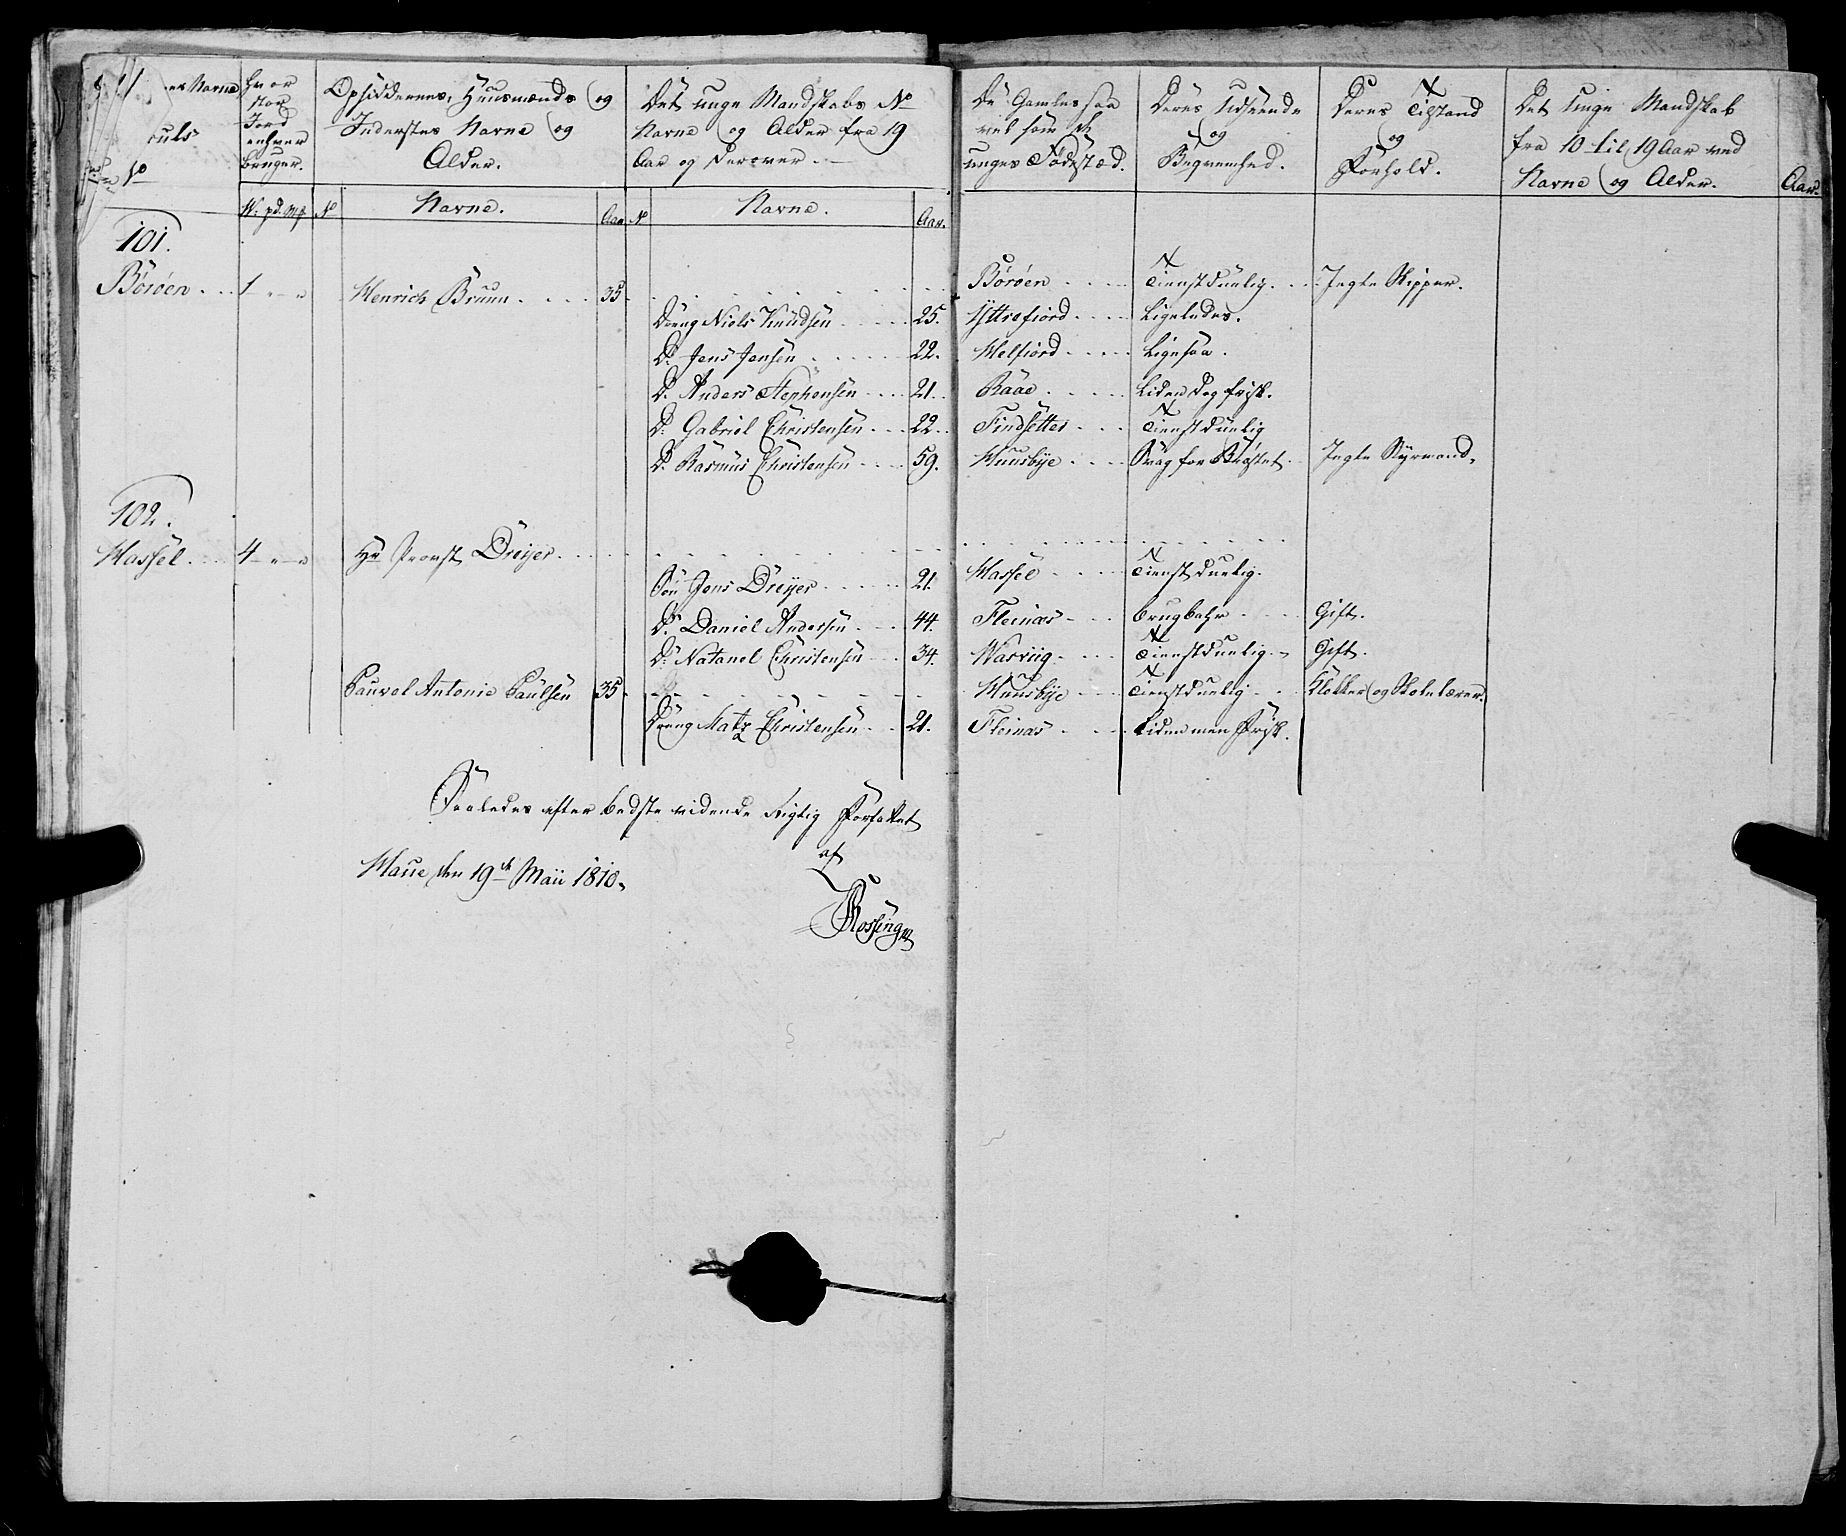 Hvor stor Jord enhver bruger.
Opsiddernes, Huusmænds og Inderstes Navne og Alder.
Det unge Mandskabs No Navne og Alder fra 19 Aar og derover
De Gamles saa vel som de unges Fødested.
Deres Udseende og Beqvemhed.
Deres Tilstand og Forhold.
Det Unge Mandskab fra 10 til 19 Aar ved Navne og Alder.
Aar.
W. pd. Mk. No Navne. Aar No Navne. Aar.
101.
Böröen 1 " " Henrich Bruun 35 Böröen Tienstduelig Jegte Skipper.
Dreng Niels Knudsen 25. Yttrefiord Ligeledes.
Do Jens Jensen 22. Welfiord Ligesaa.
Do Anders Stephensen 21. Raae Liden dog frisk.
Do Gabriel Christensen 22 Findsetter Tienstduelig
Do Rasmus Christensen 59. Huusbye Svag for Brøstet Jegte Styrmand.
102.
Hassel 4 " " Hr Provst Dreyer
Søn Jens Dreyer 21. Hassel Tienstduelig.
Dr Daniel Andersen 44. Fleinæs brugbahr Gift.
Dr Natanel Christensen 34. Warviig Tienstduelig Gift.
Pauvel Antonie Paulsen 35 Huusbye Tienstduelig Klokker og Skolelærer.
Dreng Matz Christensen 21. Fleinæs Liden men Frisk.
Saaledes efter bedste vidende Rigtig Forfattet
af
Maue den 19de Maii 1810.
Rossing